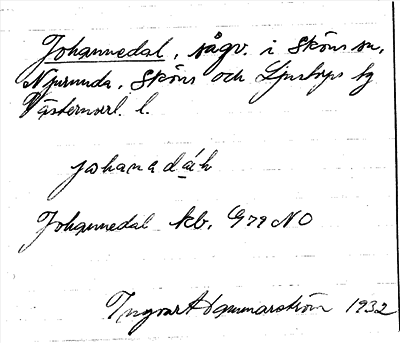 Johannedal, sågv. i Sköns sn,
Njurunda, Sköns och Ljustorps tg
Västernorrl. l.
johanadáh
Johannedal kb. G79 NO
Ingvar Hammarström 1932